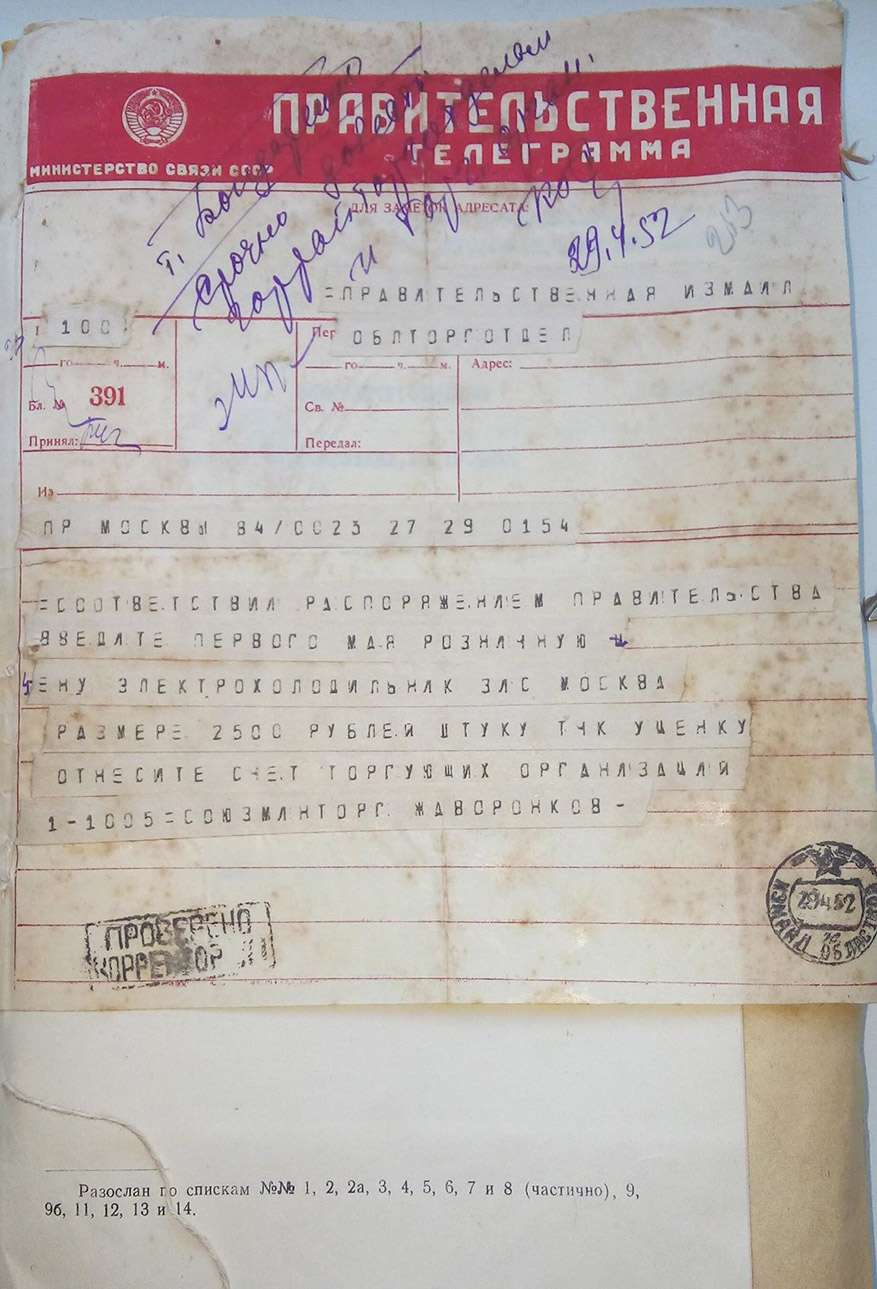 ПРАВИТЕЛЬСТВЕННАЯ
ТЕЛЕГРАММА
МИНИСТЕРСТВО СВЯЗИ СССР
т.
Срочно
и
ДЛЯ ЗАМЕТОК АДРЕСАТА:
29.4.52
253
=ПРАВИТЕЛЬСТВЕННАЯ ИЗМАИЛ
100
Пер
ОБЛТОРГОТДЕЛ
го ч. м.
го ч. м.
Адрес:
Бл. № 391
Св. №
Принял:
Передал:
Из
ПР МОСКВЫ 84/0023 27 29 0154
=СООТВЕТСТВИИ РАСПОРЯЖЕНИЕМ ПРАВИТЕЛЬСТВА
ВВЕДИТЕ ПЕРВОГО МАЯ РОЗНИЧНУЮ Ц
ЕНУ ЭЛЕКТРОХОЛОДИЛЬНИК ЗИС МОСКВА
РАЗМЕРЕ 2500 РУБЛЕЙ ШТУКУ ТЧК УЦЕНКУ
ОТНЕСИТЕ СЧЕТ ТОРГУЮЩИХ ОРГАНИЗАЦИЙ
1-1005=СОЮЗМИНТОРГ ЖАВОРОНКОВ-
29.4.52
ПРОВЕРЕНО
КОРРЕКТОР
Разослан по спискам №№ 1, 2, 2а, 3, 4, 5, 6, 7 и 8 (частично), 9,
9б, 11, 12, 13 и 14.